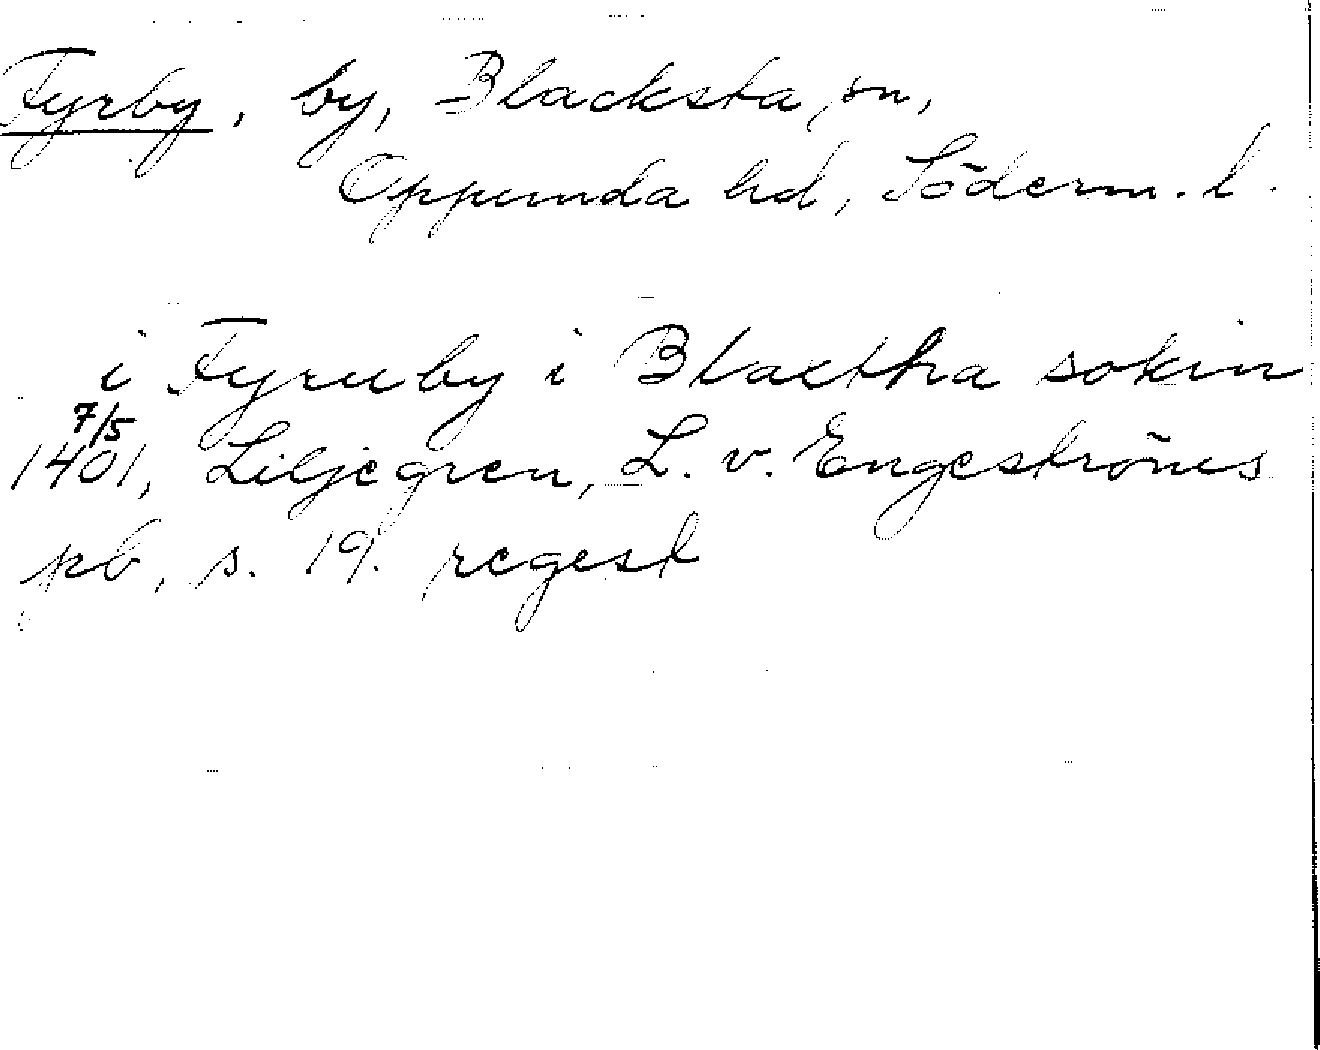 Fyrby, by, Blacksta sn,
Oppunda hd, Söderm. l.
i Fyruby i Blactha sokin
7/5
1401, Liljegren, L. v. Engeströms
pb, s. 19. regest